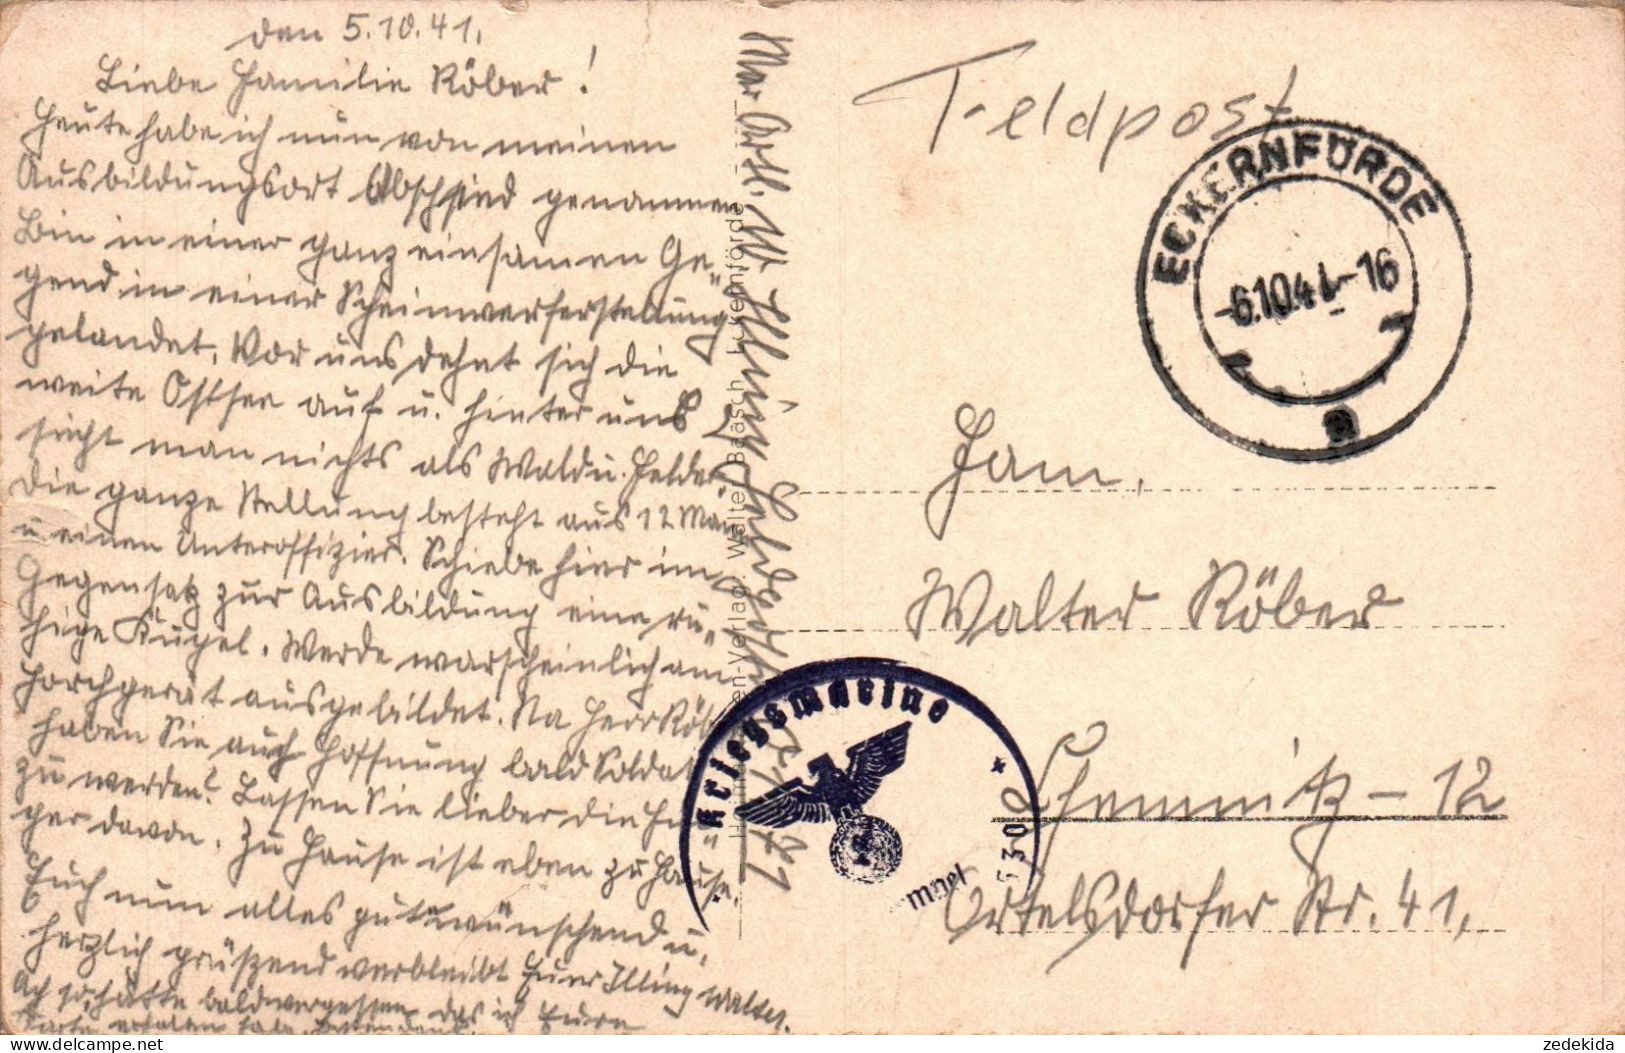 den 5.10.41.
Liebe Familie Röber!
Heute habe ich nun von meinen
Ausbildungsort Abschied genommen
Bin in einer ganz einsamen Ge-
gend in einer Scheinwerferstellung
gelandet. Vor uns dehnt sich die
weite Ostsee auf u. hinter uns
sieht man nichts als Wald u. Felder.
Die ganze Stellung besteht aus 12 Man
u. einen Unteroffizier. Schiebe hier im
Gegensatz zur Ausbildung eine ru-
hige Kugel. Werde warscheinlich am
Horchgerät ausgebildet. Na Herr Röb
haben Sie auch Hoffnung bald Soldat
zu werden? Lassen Sie lieber die Fin
ger davon. Zu Hause ist eben zu Hause.
Euch nun alles gute wünschend u.
herzlich grüßend verbleibt Euer Illing Walter.
Ach so, hätte bald vergessen, das ich Euere
Karte erhalten habe
Mar. Artl. W. Illing
Walter Baasch Eckernförde
Feldpost
ECKERNFÖRDE
-6.10.41-16
a
Fam.
Walter Röber
Chemnitz - 12
Ortelsdorfer Str. 41.
Kriegsmarine
zedekida